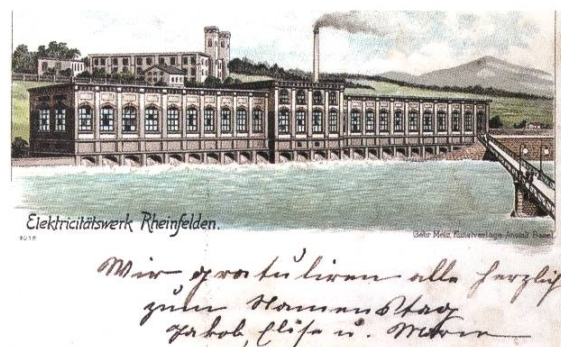 Elektricitätswerk Rheinfelden.
Gebr. Metz, Kunstverlags-Anstalt Basel
Wir gratuliren alle herzlich
zum Namenstag
Jakob, Elise u. Marie